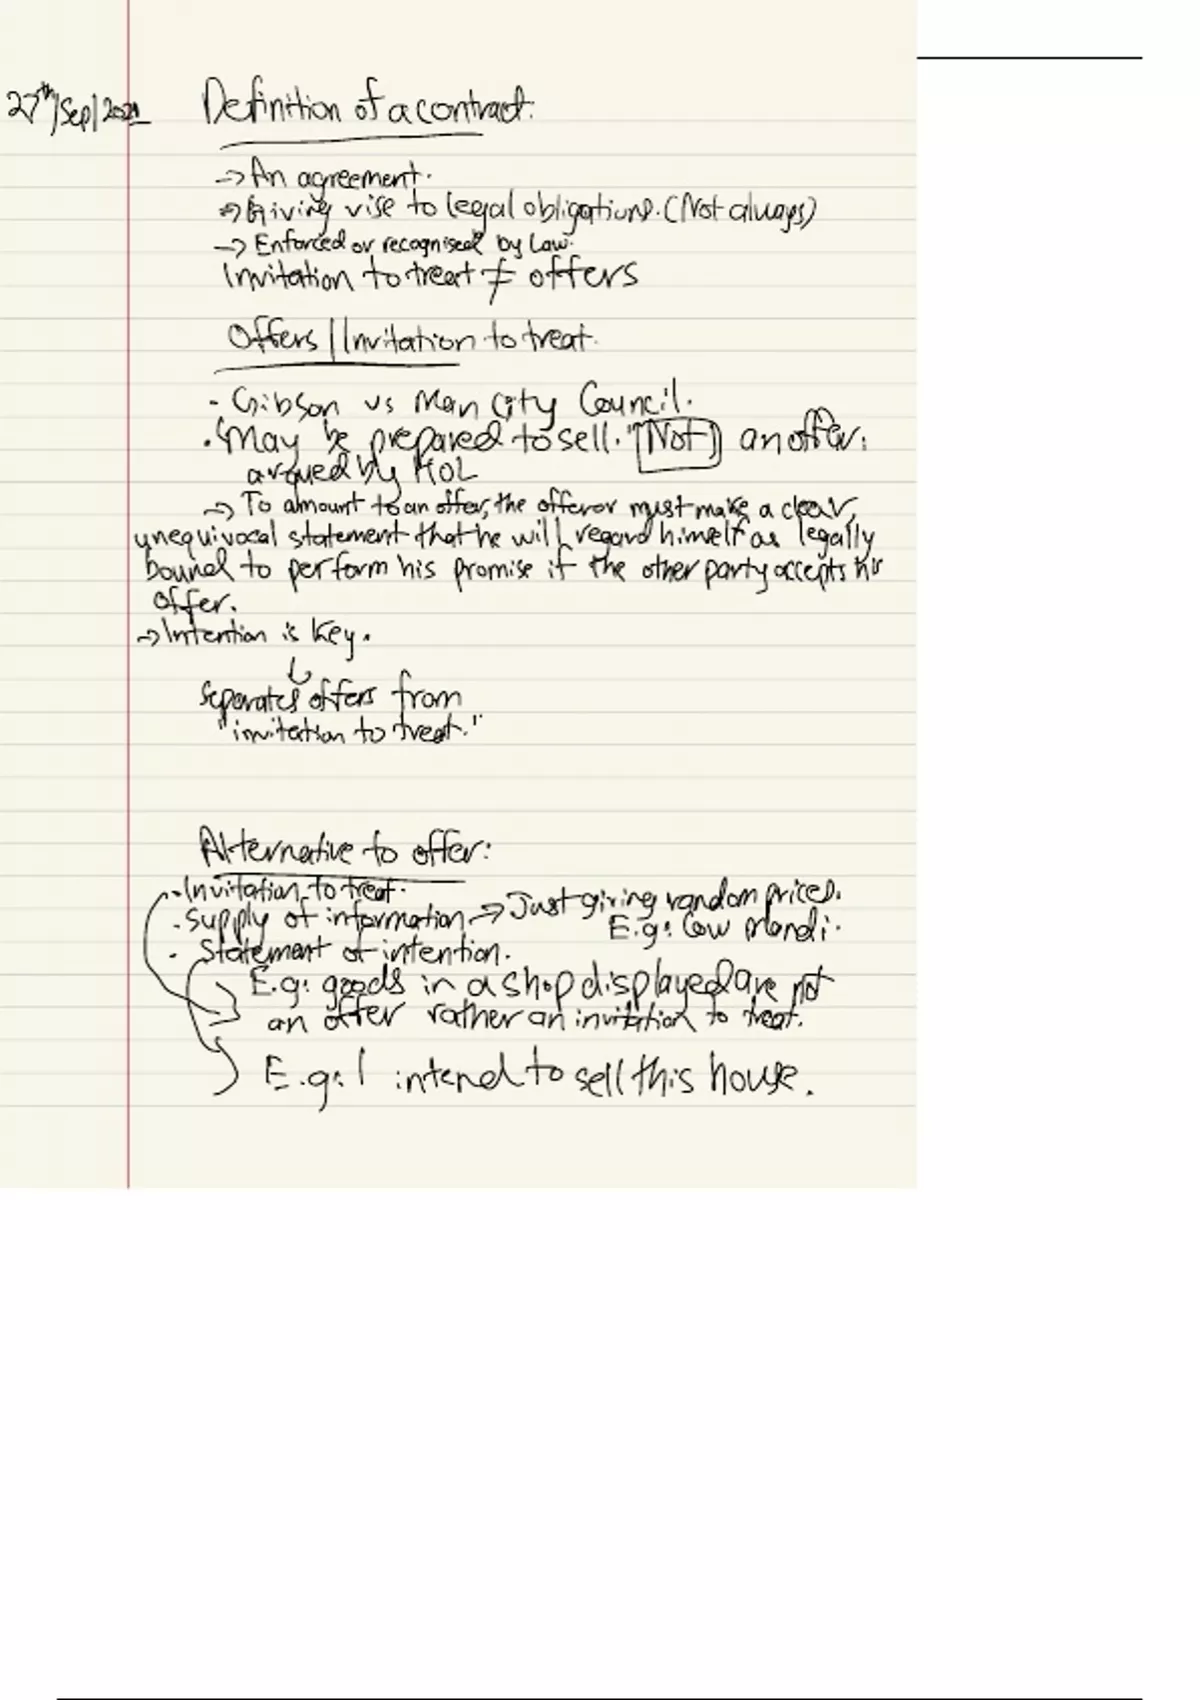 27th/Sep/2021 Definition of a contract:
-> An agreement.
-> Giving rise to legal obligations. (Not always)
-> Enforced or recognised by Law.
Invitation to treat ≠ offers
Offers || Invitation to treat.
- Gibson vs Man City Council.
. "May be prepared to sell." Not an offer.
argued by HOL
-> To amount to an offer, the offeror must make a clear,
unequivocal statement that he will regard himself as legally
bound to perform his promise if the other party accepts his
offer.
-> Intention is key.
Separates offers from
"invitation to treat."
Alternative to offer:
- Invitation to treat.
. Supply of information -> Just giving random prices.
E.g: Cow Mandi.
. Statement of intention.
E.g: goods in a shop displayed are not
an offer rather an invitation to treat.
E.g: I intend to sell this house.